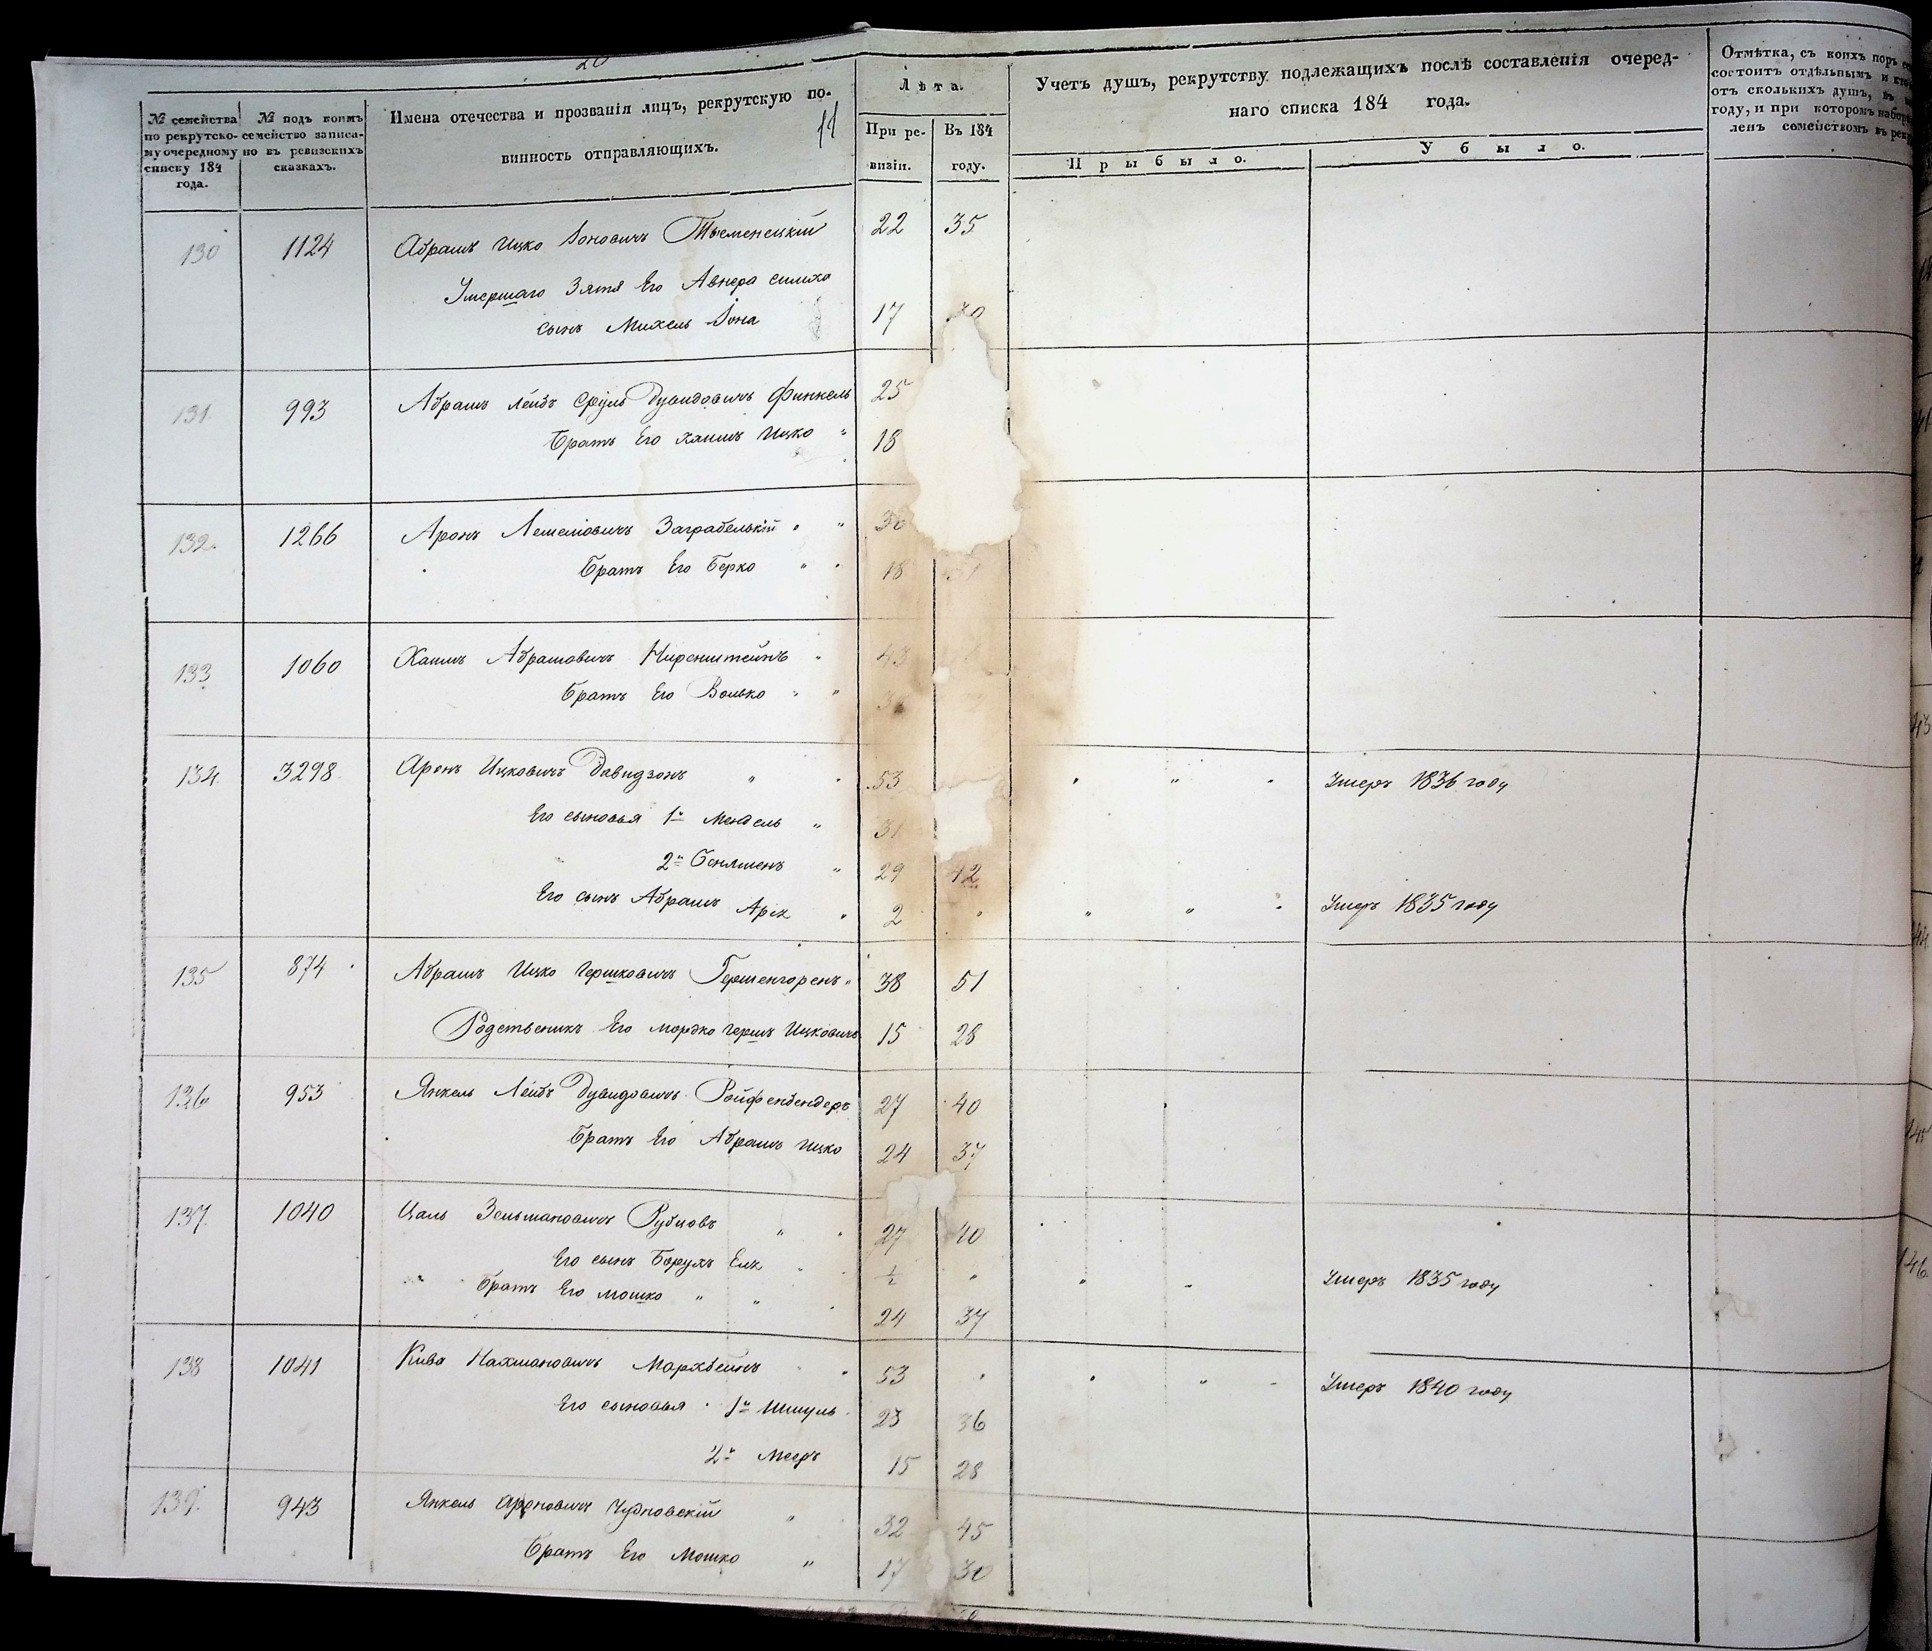 № семейства по рекрутско-му очередному списку 184 года.
№ подъ коимъ семейство записа-но въ ревизскихъ сказкахъ.
Имена отечества и прозванія лицъ, рекрутскую по-
винность отправляющихъ.
Лѣта.
При ре-визіи.
Въ 184 году.
Учетъ душъ, рекрутству подлежащихъ послѣ составленія очеред-
наго списка 184 года.
Прибыло.
Убыло.
Отмѣтка, съ коихъ поръ
состоитъ отдѣльнымъ и
отъ сколькихъ душъ, въ
году, и при которомъ
ленъ семействомъ въ
130 1124 Абрамъ Ицко Іоновичъ 22 35
Умершаго Зятя Его Авнера Симха
сынъ Михель Іона 17 30
131 993 Абрамъ Лейбъ Сруль Дувидовичъ Финкель 25
Братъ Его Хаимъ Ицко " 18
132. 1266 Аронъ Заграбельскій " " 36
Братъ Его Берко " " 18 31
133 1060 Хаимъ Абрамовичъ Ниренштейнъ " 43
Братъ Его Волько " "
134 3298 Аронъ Ицковичъ Давидзонъ " " 53 " " " Умеръ 1836 году
Его сыновья 1й Мендель " 31
2й Беняменъ " 29 42
Его сынъ Абрамъ Арех " 2 " " " " Умеръ 1835 году
135 874 Абрамъ Ицко Гершковичъ Гершенгоренъ " 38 51
Родственикъ Его Мордко Гершъ Ицковичъ 15 28
136 953 Янкель Лейбъ Дувидовичъ Ройфенбендеръ 27 40
Братъ Его Абрамъ Ицко 24 37
137. 1040 Цаль Зельмановичъ Рубновъ " " 27 40
Его сынъ Борухъ " 1/2 " " " Умеръ 1835 году
Братъ Его Мошко " " " 24 37
138 1041 Кива Нахмановичъ Мархбейнъ " 53 " " " " Умеръ 1840 году
Его сыновья 1й Шмуль 23 36
2й Мееръ 15 28
139. 943 Янкель Ароновичъ Чудновскій " 32 45
Братъ Его Мошко " 17 30